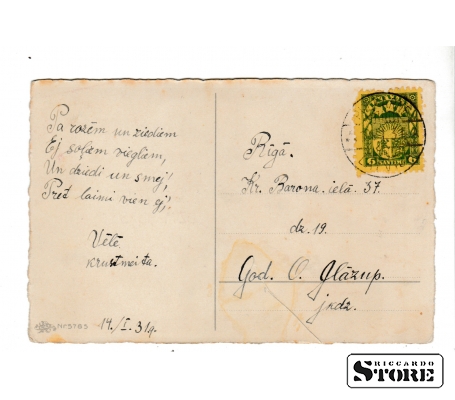 Pa rozēm un ziediem
Ej soļiem viegliem,
Un dziedi un smej!
Pret laimi vien ej!
Vēlē
krustmeita.
14./I. 31g.
Rīgā.
Kr. Barona, ielā 37.
dz. 19.
God. O. Glāzup.
jkdz.
6 SANTIMI 6
RICCARDO
STORE